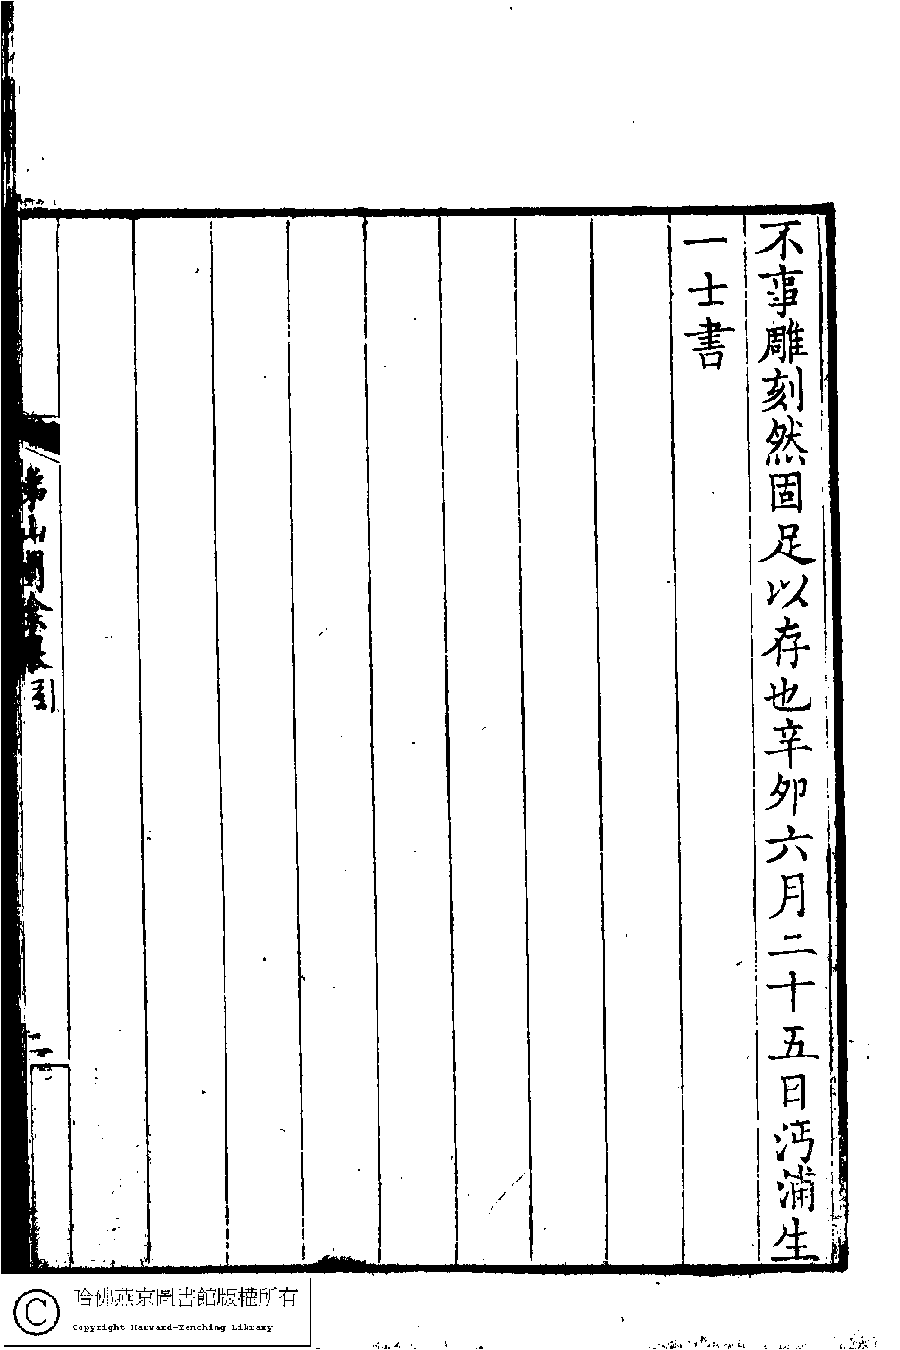 不事雕刻然固足以存也辛夘六月二十五日沔浦生
一士書
山
引
哈佛燕京圖書館版權所有
Copyright Harvard-Yenching Library